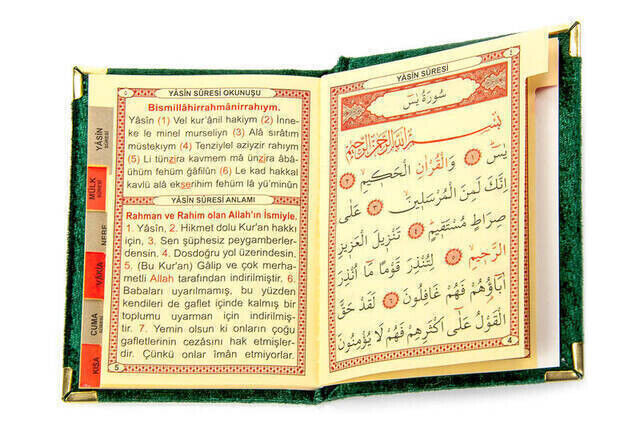 YÂSİN SÛRESİ OKUNUŞU
Bismillâhirrahmânirrahıym.
Yâsîn (1) Vel kur'ânil hakiym (2) İnne-
ke le minel murseliyn (3) Alâ sırâtım
müstekıym (4) Tenziylel aziyzir rahıym
(5) Li tünzira kavmem mâ ünzira âbâ-
ühüm fehüm ğâfilûn (6) Le kad hakkal
kavlü alâ ekserihim fehüm lâ yü'minûn
YÂSÎN SÛRESİ ANLAMI
Rahman ve Rahim olan Allah'ın İsmiyle.
1. Yâsîn, 2. Hikmet dolu Kur'an hakkı
için, 3. Sen şüphesiz peygamberler-
densin. 4. Dosdoğru yol üzerindesin.
5. (Bu Kur'an) Gâlip ve çok merha-
metli Allah tarafından indirilmiştir. 6.
Babaları uyarılmamış, bu yüzden
kendileri de gaflet içinde kalmış bir
toplumu uyarman için indirilmiş-
tir. 7. Yemin olsun ki onların çoğu
gafletlerinin cezasını hak etmişler-
dir. Çünkü onlar îmân etmiyorlar.
5
YÂSİN SÛRESİ
MÜLK
SÛRESİ
NEBE
CUMA
KISA
YÂSİN SÛRESİ
سُورَةُ يٰسٓ
بِسْمِ اللّٰهِ الرَّحْمٰنِ الرَّحِيمِ
يٰسٓ ﴿١﴾ وَالْقُرْاٰنِ الْحَكِيمِ ﴿٢﴾
اِنَّكَ لَمِنَ الْمُرْسَلِينَ ﴿٣﴾ عَلٰى
صِرَاطٍ مُسْتَقِيمٍ ﴿٤﴾ تَنْزِيلَ الْعَزِيزِ
الرَّحِيمِ ﴿٥﴾ لِتُنْذِرَ قَوْمًا مَٓا اُنْذِرَ
اٰبَٓاؤُهُمْ فَهُمْ غَافِلُونَ ﴿٦﴾ لَقَدْ حَقَّ
الْقَوْلُ عَلٰٓى اَكْثَرِهِمْ فَهُمْ لَا يُؤْمِنُونَ
4